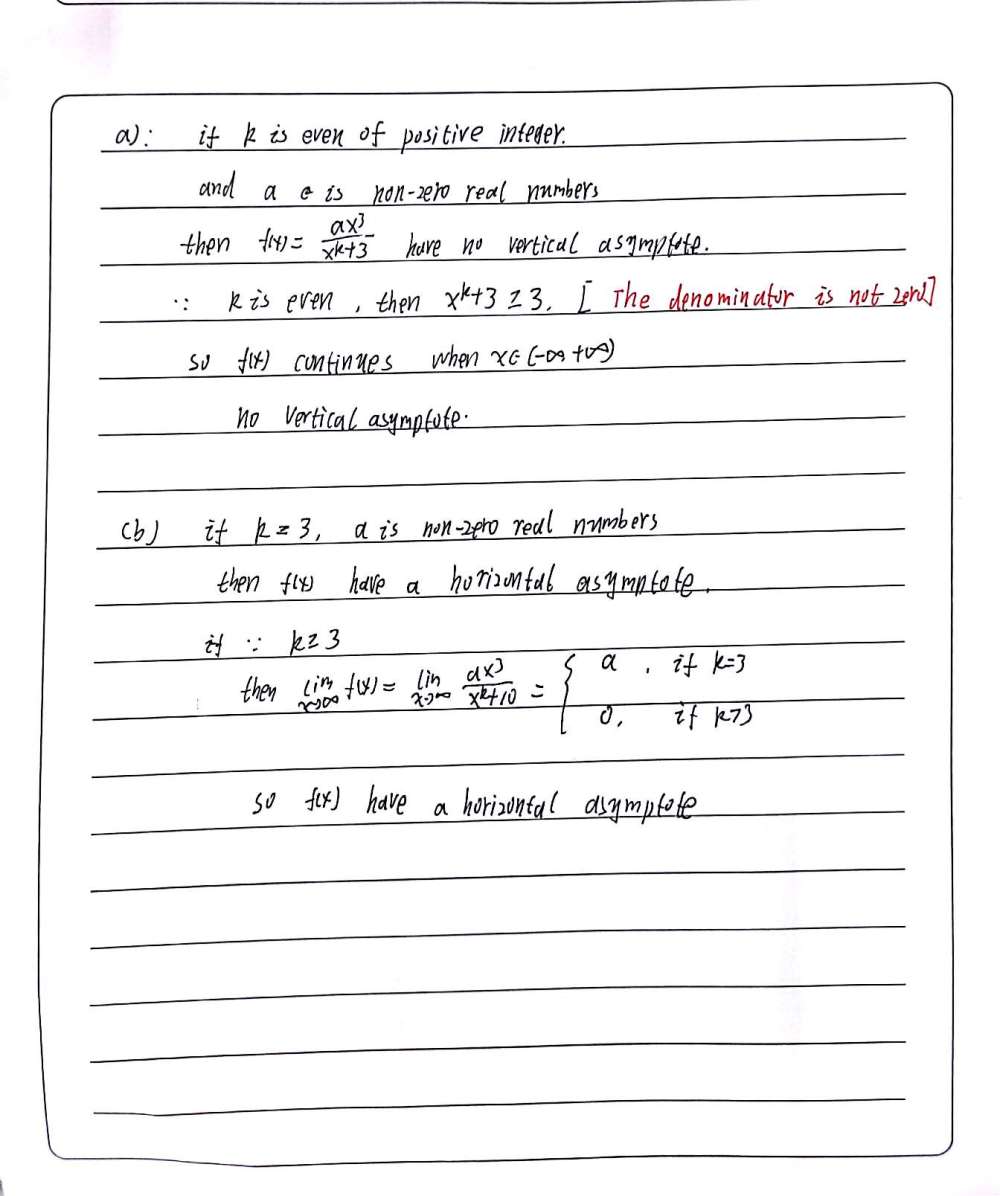 a): if k is even of positive integer.
and a is non-zero real numbers
then f(x) = ax³/xᵏ+3 have no vertical asymptote.
∵ k is even, then xᵏ+3 ≥ 3. [The denominator is not zero]
so f(x) continues when x∈(-∞ +∞)
no vertical asymptote.
(b) if k ≥ 3, a is non-zero real numbers
then f(x) have a horizontal asymptote.
if ∵ k ≥ 3
then lim x→∞ f(x) = lim x→∞ ax³/xᵏ+10 = { a, if k=3
0, if k>3
so f(x) have a horizontal asymptote